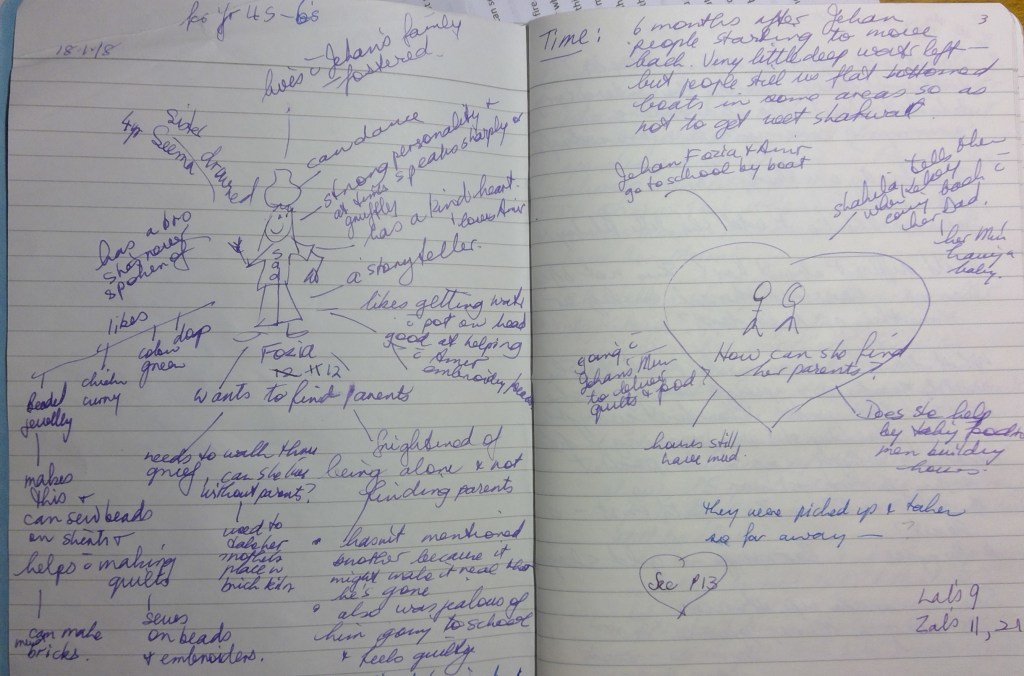 for yr 4 5 - 6s
18.1.18
lives c Jehan's family
fostered.
4yr Sister
Seema drowned
can dance
strong personality +
at times speaks sharply or
gruffly
has a kind heart.
loves Amir
has a bro
she never
spoken of
a storyteller.
likes getting water
c pot on head
good at helping
c Amir
embroidery
likes
beaded
jewellry
chicken
curry
colour
green
Fozia
12
wants to find parents
makes
this +
can sew beads
on shirts +
helps c making
quilts
can make
mud
bricks.
sews
on beads
+ embroiders.
needs to walk thru
grief
can she live
without parents?
used to
take her
mothers
place in
brick kiln
frightened of
being alone + not
finding parents
• hasn't mentioned
brother because it
might make it real that
he's gone
• also was jealous of
him going to school
+ feels guilty
3
Time: 6 months after Jehan
people starting to move
back. Very little deep water left —
but people still use flat bottomed
boats in some areas so as
not to get wet shalwar.
Jehan Fozia & Amir
go to school by boat
Shahila tells them
when
come back c
her Dad.
her Mum
having a
baby.
How can she find
her parents?
going c
Jehan's Mum
to deliver
quilts & food?
houses still
have mud.
Does she help
by taking food to
men building
houses.
They were picked up & taken
so far away —
See P13
Lal's 9
Zab's 11, 21